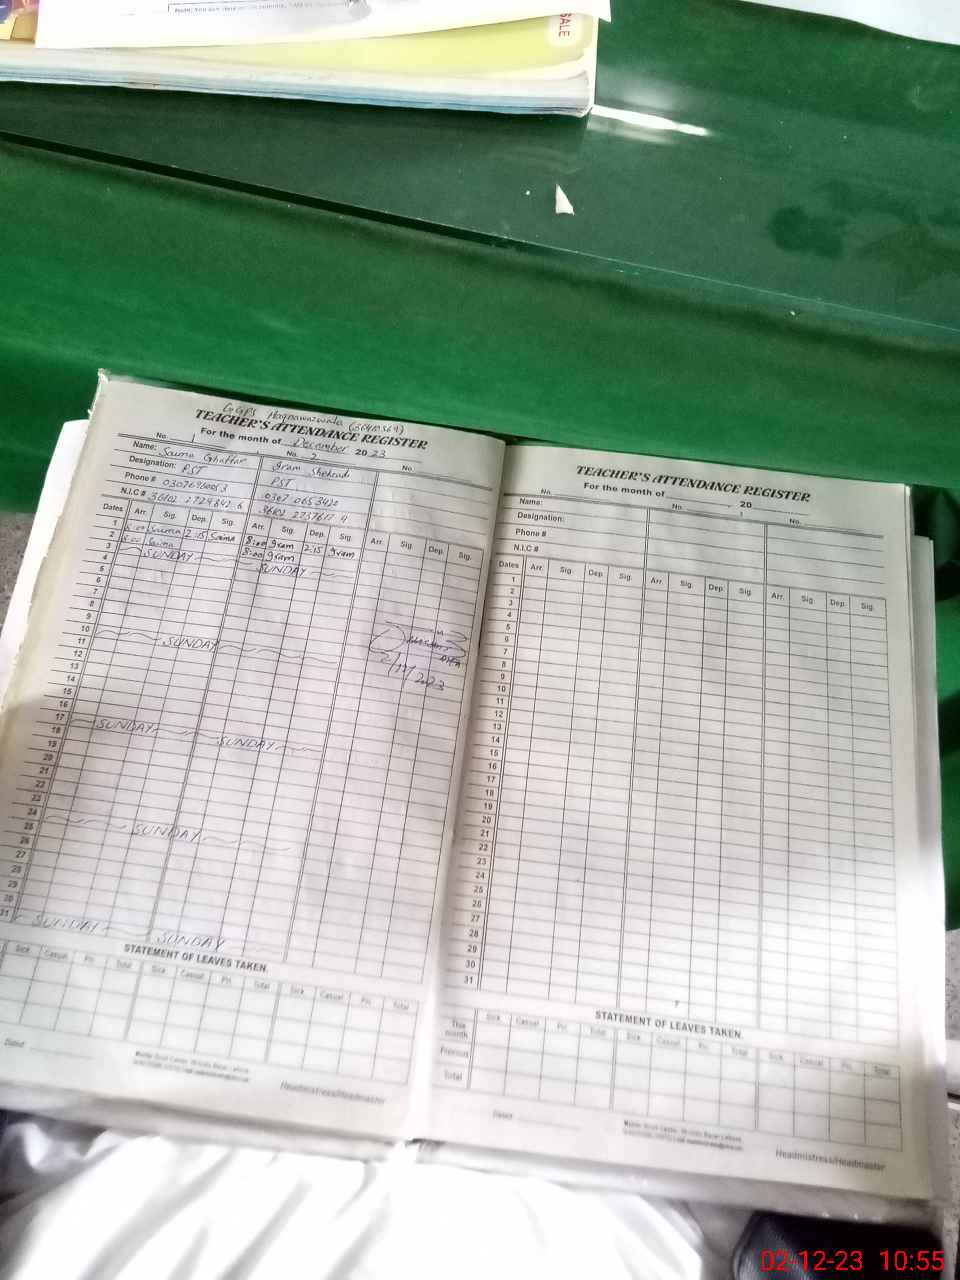 SALE
GGPS Haqnawazwala (36410369)
TEACHER'S ATTENDANCE REGISTER
For the month of December 2023
No. 1 No. 2 No.
Name: Saima Ghaffar Iqram Shehzadi
Designation: PST PST
Phone # 0307 0653420
N.I.C #
Dates Arr. Sig. Dep. Sig. Arr. Sig. Dep. Sig. Arr. Sig. Dep. Sig.
1 8:00 Saima 2:15 Saima 8:00 Iqram 2:15 Iqram
2 8:00 Saima 8:00 Iqram
3 SUNDAY SUNDAY
4
5
6
7
8
9
10 SUNDAY
11
12
13
14
15
16
17 SUNDAY SUNDAY
18
19
20
21
22
23
24 SUNDAY
25
26
27
28
29
30
31 SUNDAY SUNDAY
STATEMENT OF LEAVES TAKEN.
Sick Casual Pri. Total Sick Casual Pri. Total Sick Casual Pri. Total
Dated
Headmistress/Headmaster
TEACHER'S ATTENDANCE REGISTER
For the month of , 20
No. No. No.
Name:
Designation:
Phone #
N.I.C #
Dates Arr. Sig. Dep. Sig. Arr. Sig. Dep. Sig. Arr. Sig. Dep. Sig.
1
2
3
4
5
6
7
8
9
10
11
12
13
14
15
16
17
18
19
20
21
22
23
24
25
26
27
28
29
30
31
STATEMENT OF LEAVES TAKEN.
This month Sick Casual Pri. Total Sick Casual Pri. Total Sick Casual Pri. Total
Previous
Total
Dated
Headmistress/Headmaster
02-12-23 10:55